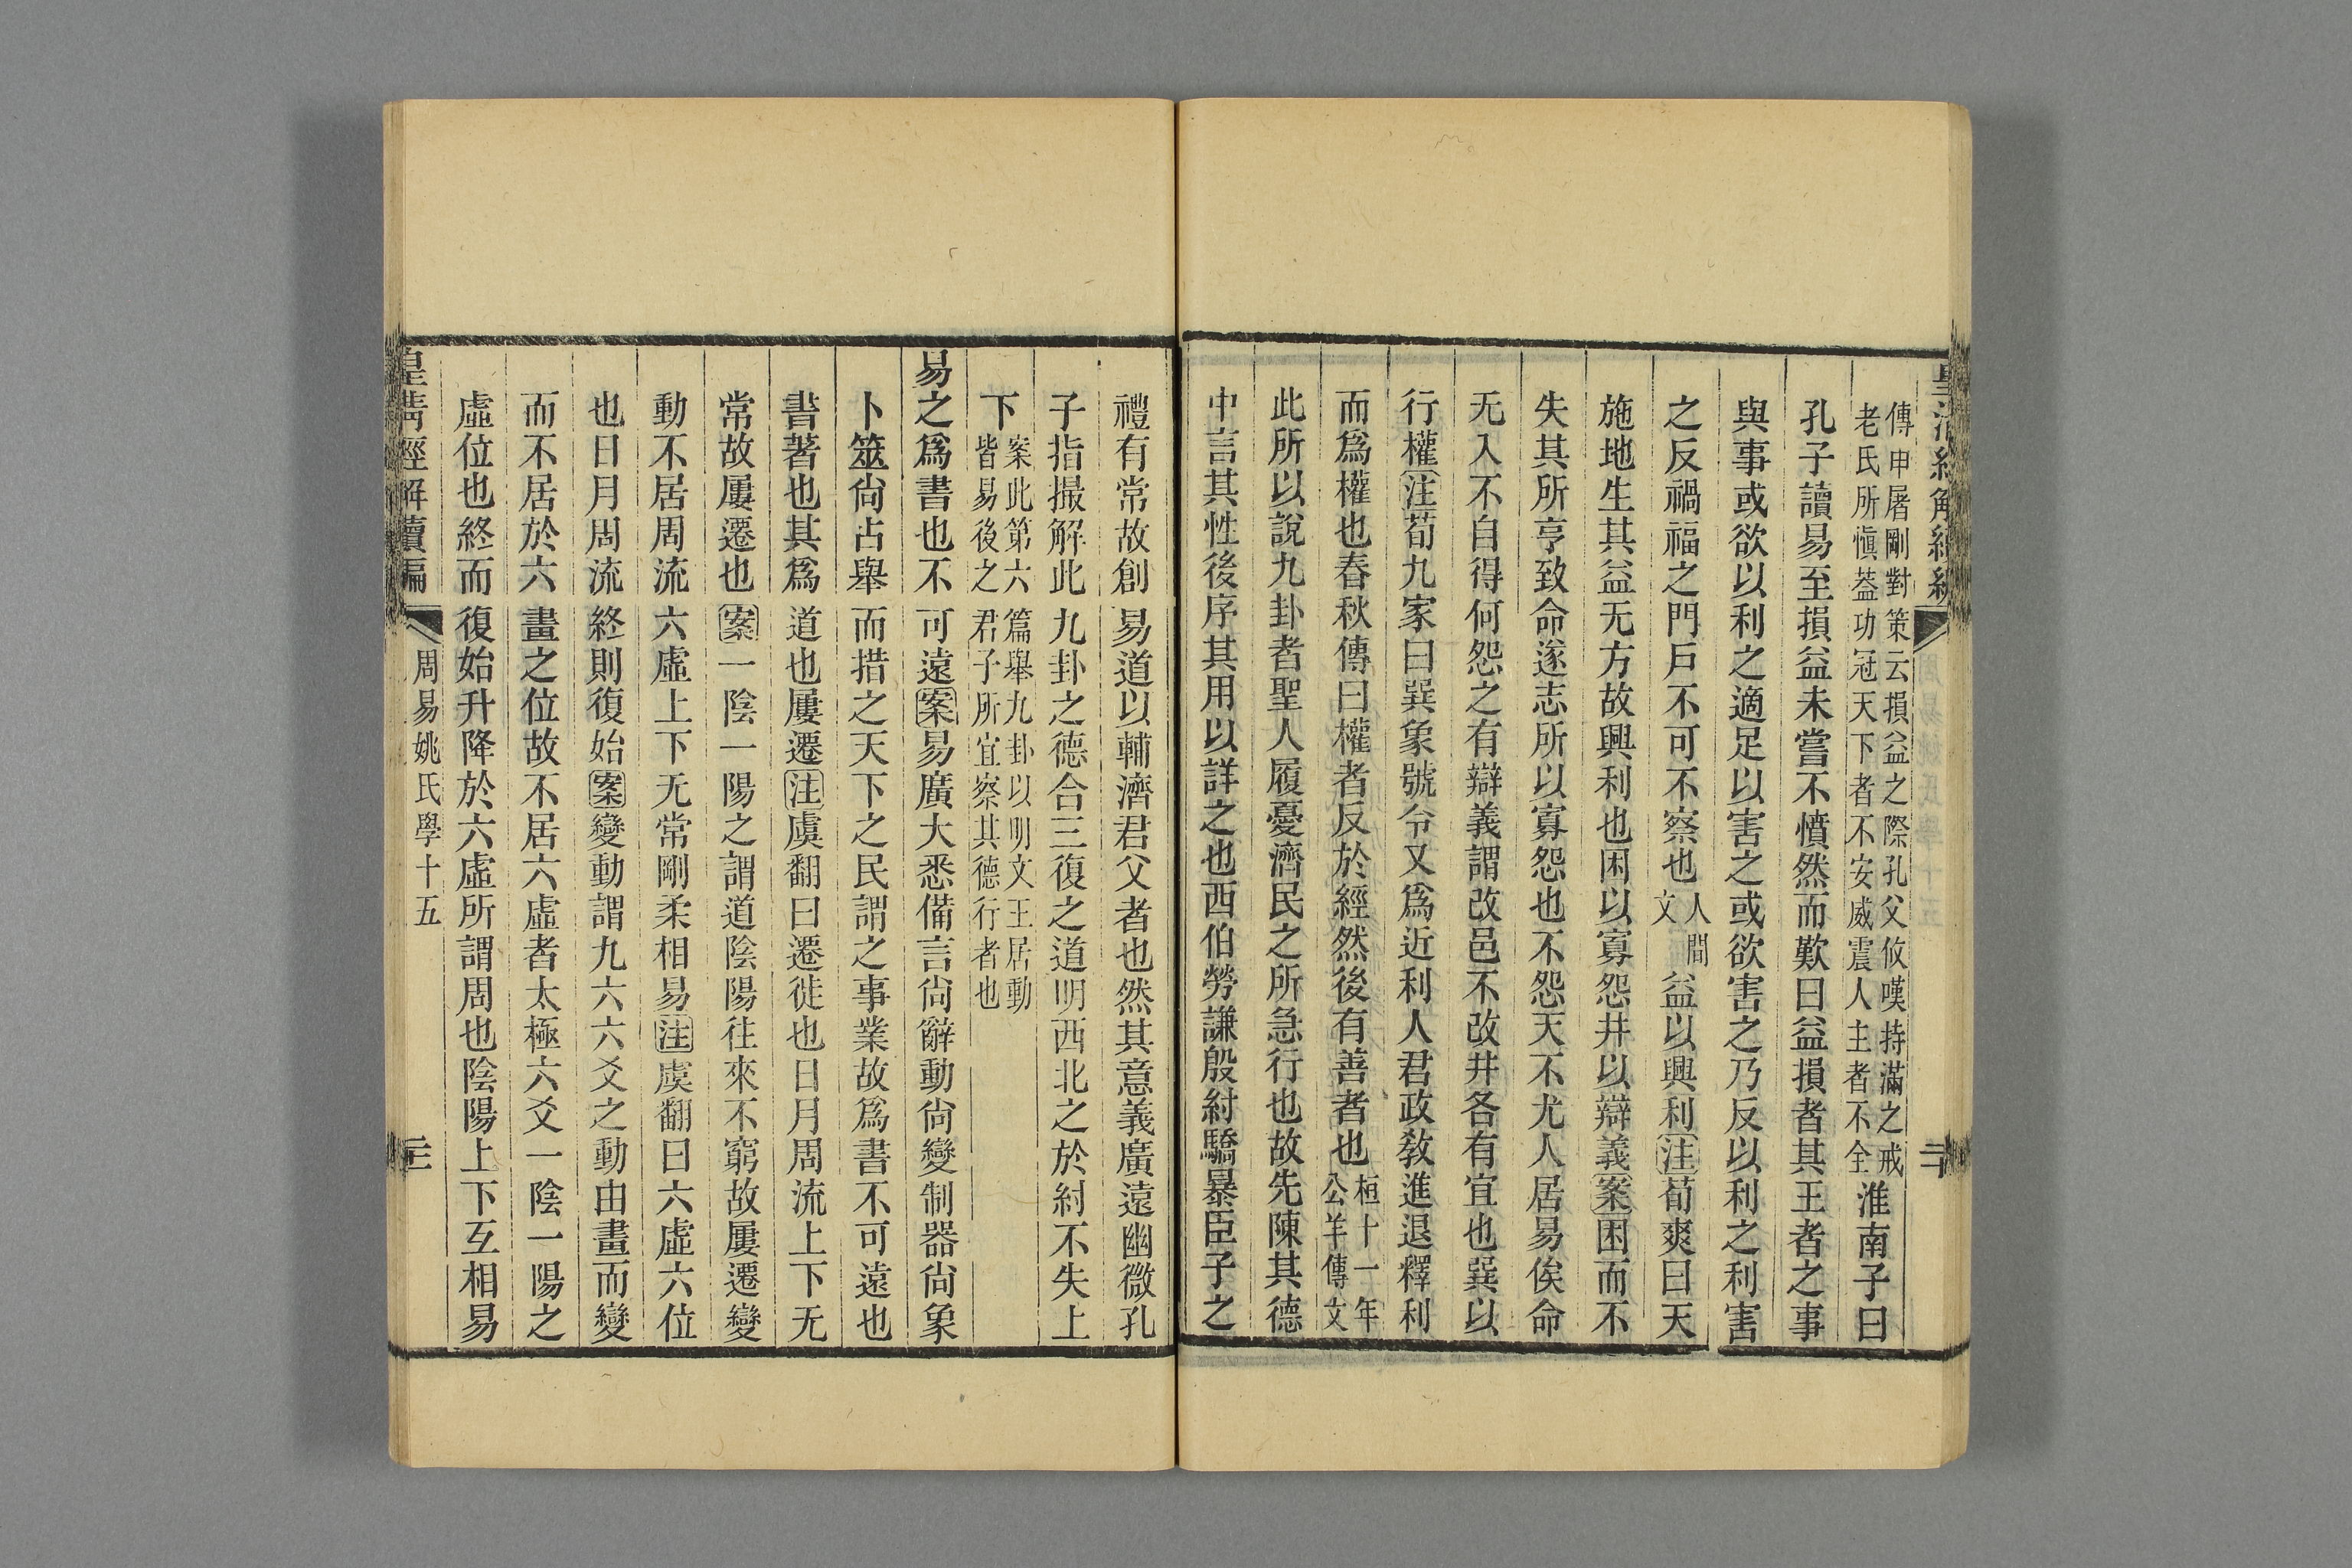 傳申屠剛對策云損益之際孔父攸嘆持滿之戒
老氏所愼葢功冠天下者不安威震人主者不全
淮南子曰
孔子讀易至損益未嘗不憤然而歎曰益損者其王者之事
與事或欲以利之適足以害之或欲害之乃反以利之利害
之反禍福之門戸不可不察也
人間
文
益以興利注荀爽曰天
施地生其益无方故興利也困以寡怨井以辯義案困而不
失其所亨致命遂志所以寡怨也不怨天不尤人居易俟命
无入不自得何怨之有辯義謂改邑不改井各有宜也巽以
行權注荀九家曰巽象號令又爲近利人君政敎進退釋利
而爲權也春秋傳曰權者反於經然後有善者也
桓十一年
公羊傳文
此所以說九卦者聖人履憂濟民之所急行也故先陳其德
中言其性後序其用以詳之也西伯勞謙殷紂驕暴臣子之
禮有常故創易道以輔濟君父者也然其意義廣遠幽微孔
子指撮解此九卦之德合三復之道明西北之於紂不失上
下
案此第六篇舉九卦以明文王居動
皆易後之君子所宜察其德行者也
易之爲書也不可遠案易廣大悉備言尙辭動尙變制器尙象
卜筮尙占舉而措之天下之民謂之事業故爲書不可遠也
書著也其爲道也屢遷注虞翻曰遷徙也日月周流上下无
常故屢遷也案一陰一陽之謂道陰陽往來不窮故屢遷變
動不居周流六虛上下无常剛柔相易注虞翻曰六虛六位
也日月周流終則復始案變動謂九六六爻之動由畫而變
而不居於六畫之位故不居六虛者太極六爻一陰一陽之
虛位也終而復始升降於六虛所謂周也陰陽上下互相易
皇淸經解續編
周易姚氏學十五